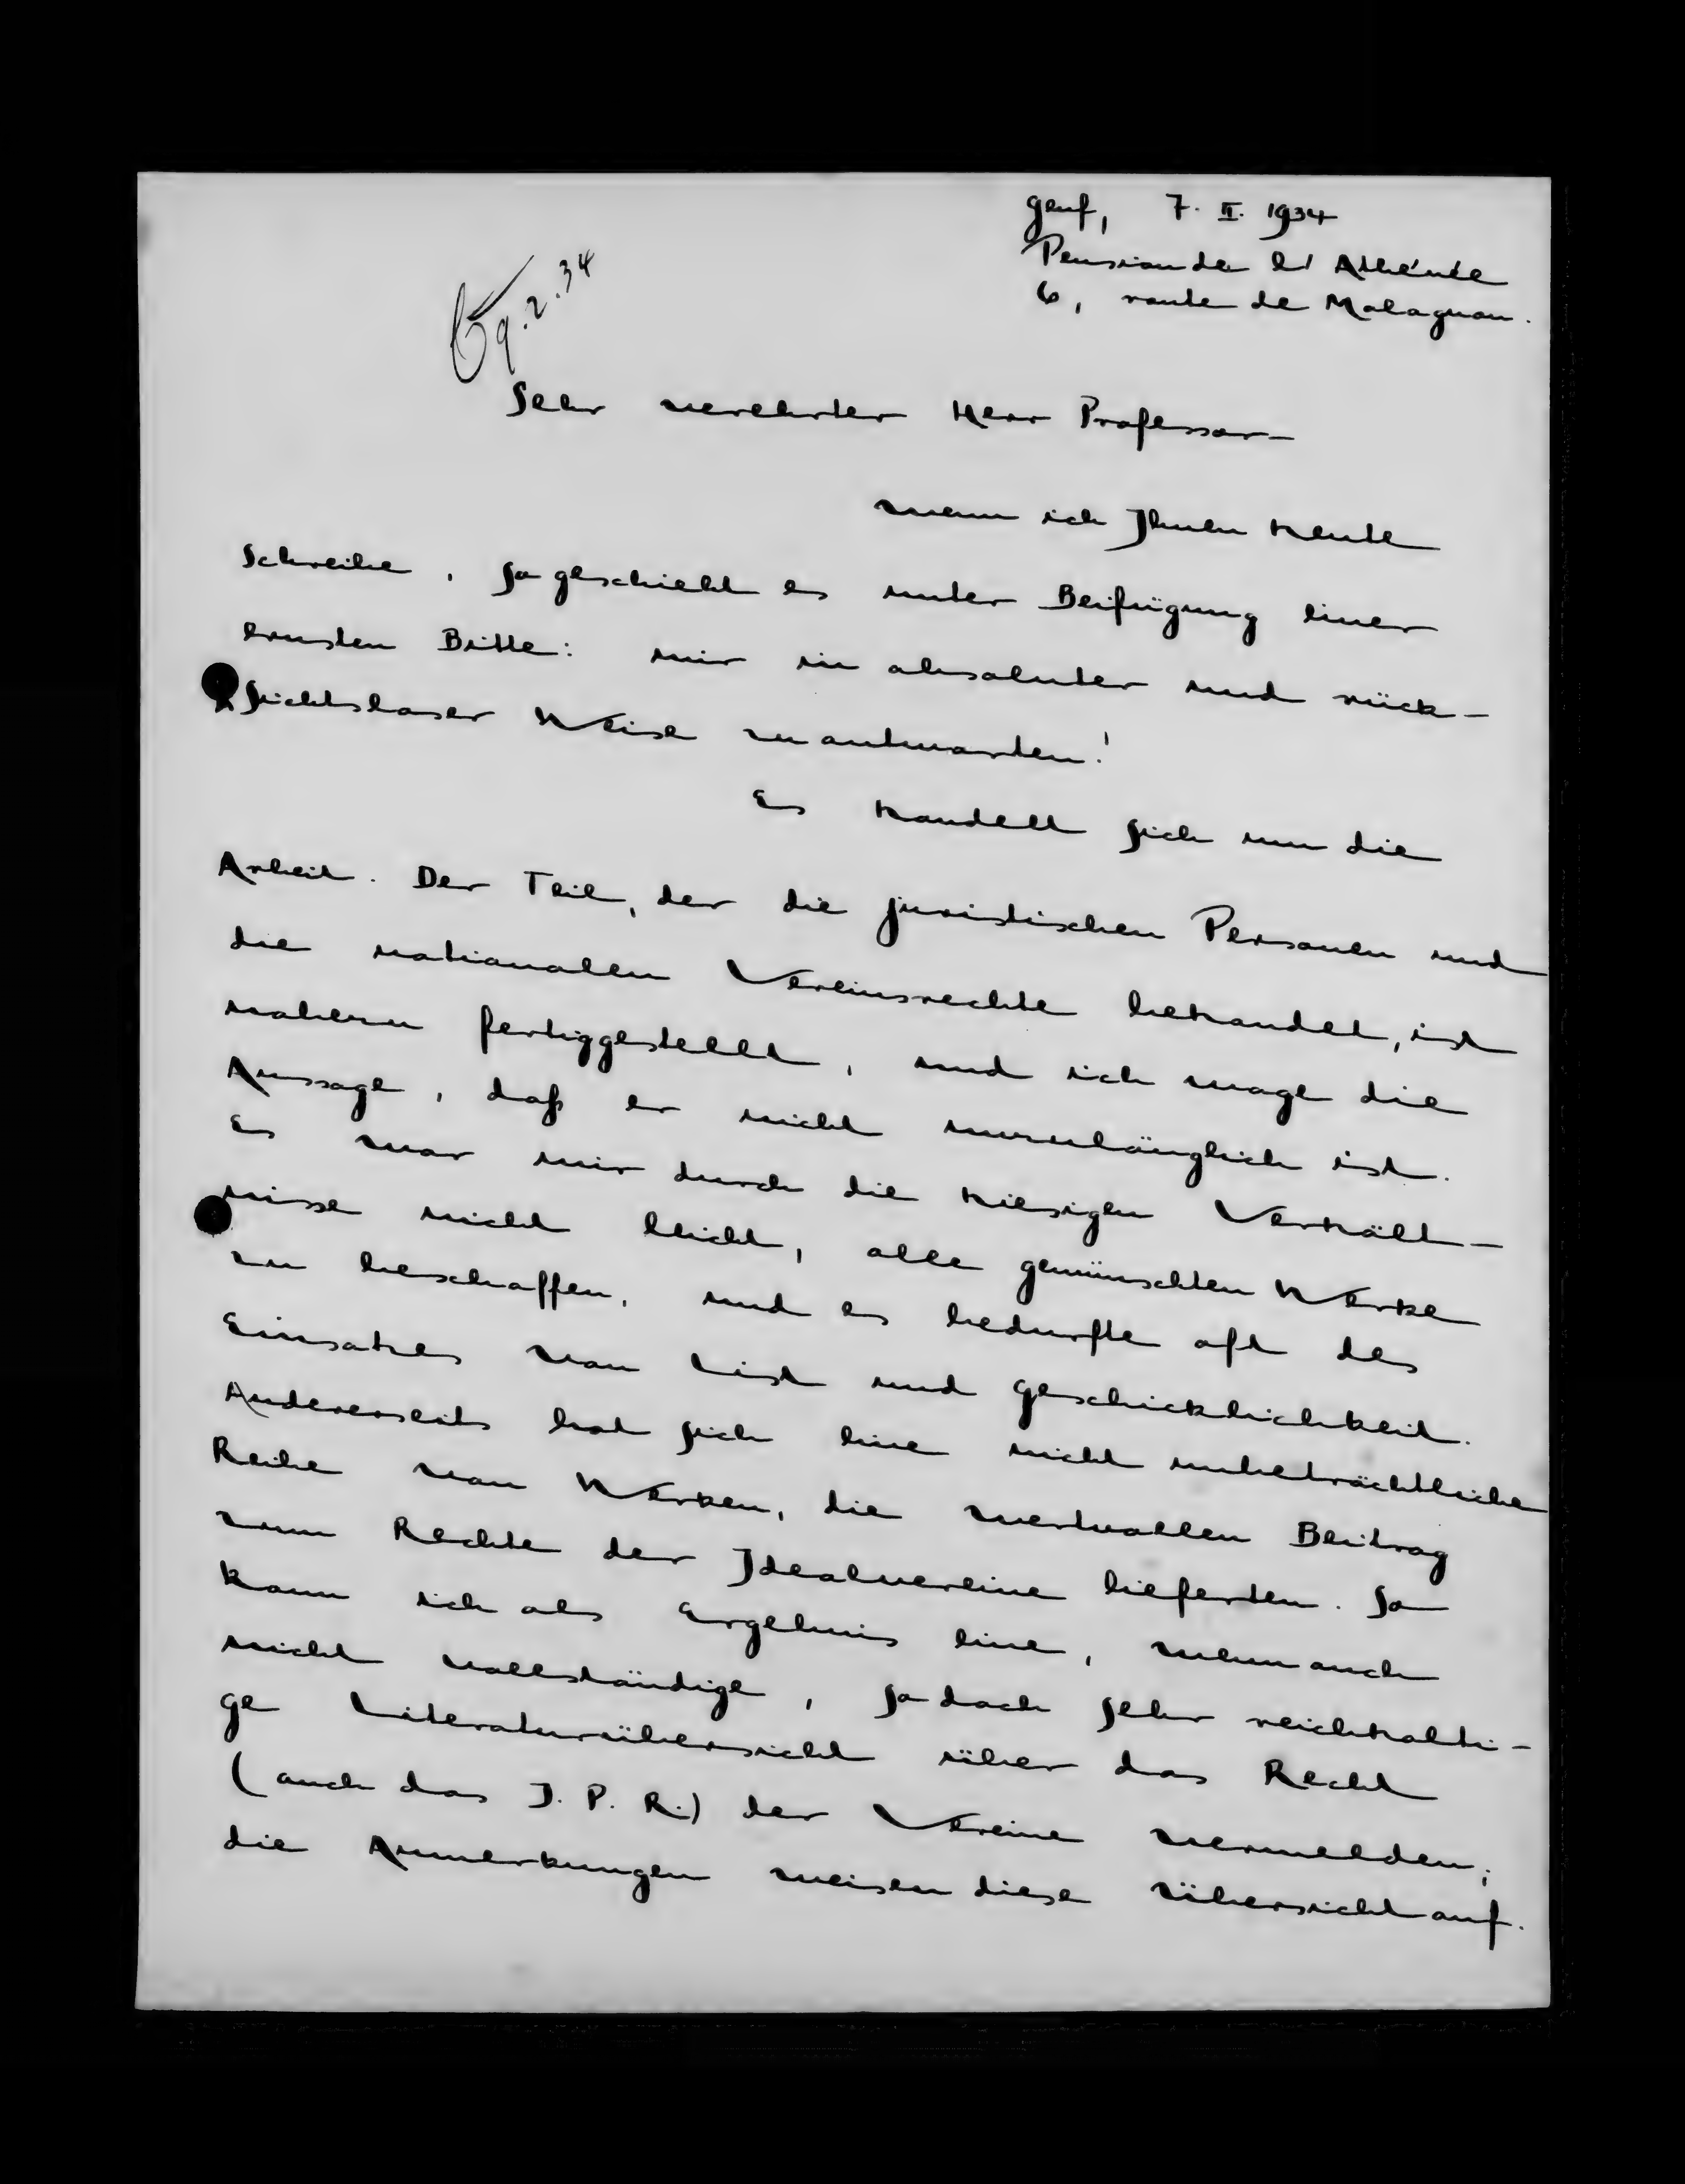 Genf, 7. II. 1934
Pension de l'Athénée
6, route de Malagnou.
9.2.34
Sehr verehrter Herr Professor –
wenn ich Ihnen heute
schreibe, so geschieht es unter Beifügung einer
ernsten Bitte: mir in absoluter und rück-
sichtsloser Weise zu antworten!
Es handelt sich um die
Arbeit. Der Teil, der die juristischen Personen und
die nationalen Vereinsrechte behandelt, ist
nahezu fertiggestellt, und ich wage die
Aussage, daß er nicht unzulänglich ist.
Es war mir durch die hiesigen Verhält-
nisse nicht leicht, alle gewünschten Werke
zu beschaffen, und es bedurfte oft des
Einsatzes von List und Geschicklichkeit.
Andererseits hat sich eine nicht unbeträchtliche
Reihe von Werken, die wertvollen Beitrag
zum Rechte der Idealvereine lieferten. So
kann ich als Ergebnis eine, wenn auch
nicht vollständige, so doch sehr reichhalti-
ge Literaturübersicht über das Recht
(auch das I. P. R.) der Vereine vermelden;
die Anmerkungen weisen diese Übersicht auf.